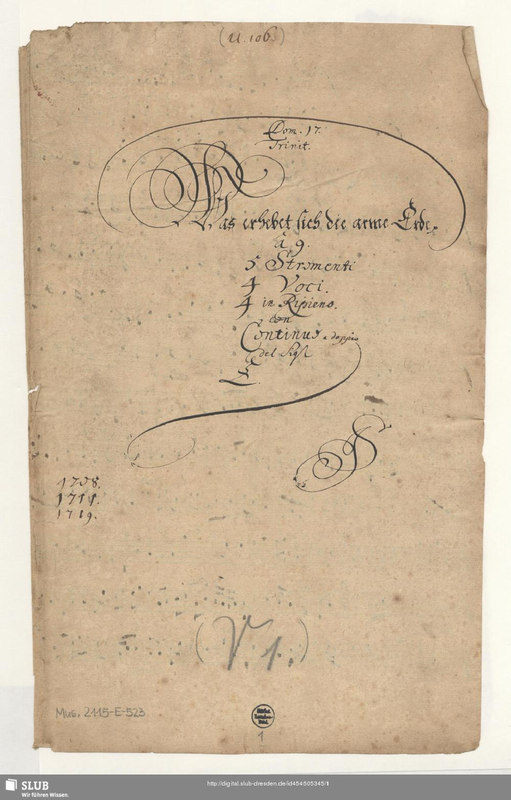 (U. 106.)
Dom. 17.
Trinit.
Was erhebet sich die arme Erde.
à 9.
5 Stromenti
4 Voci.
4 in Ripieno.
con
Continuo
del Sigr
E
1708.
1711.
1719.
(V. 1.)
Mus. 2115-E-523
1
SLUB
Wir führen Wissen.
http://digital.slub-dresden.de/id454505345/1